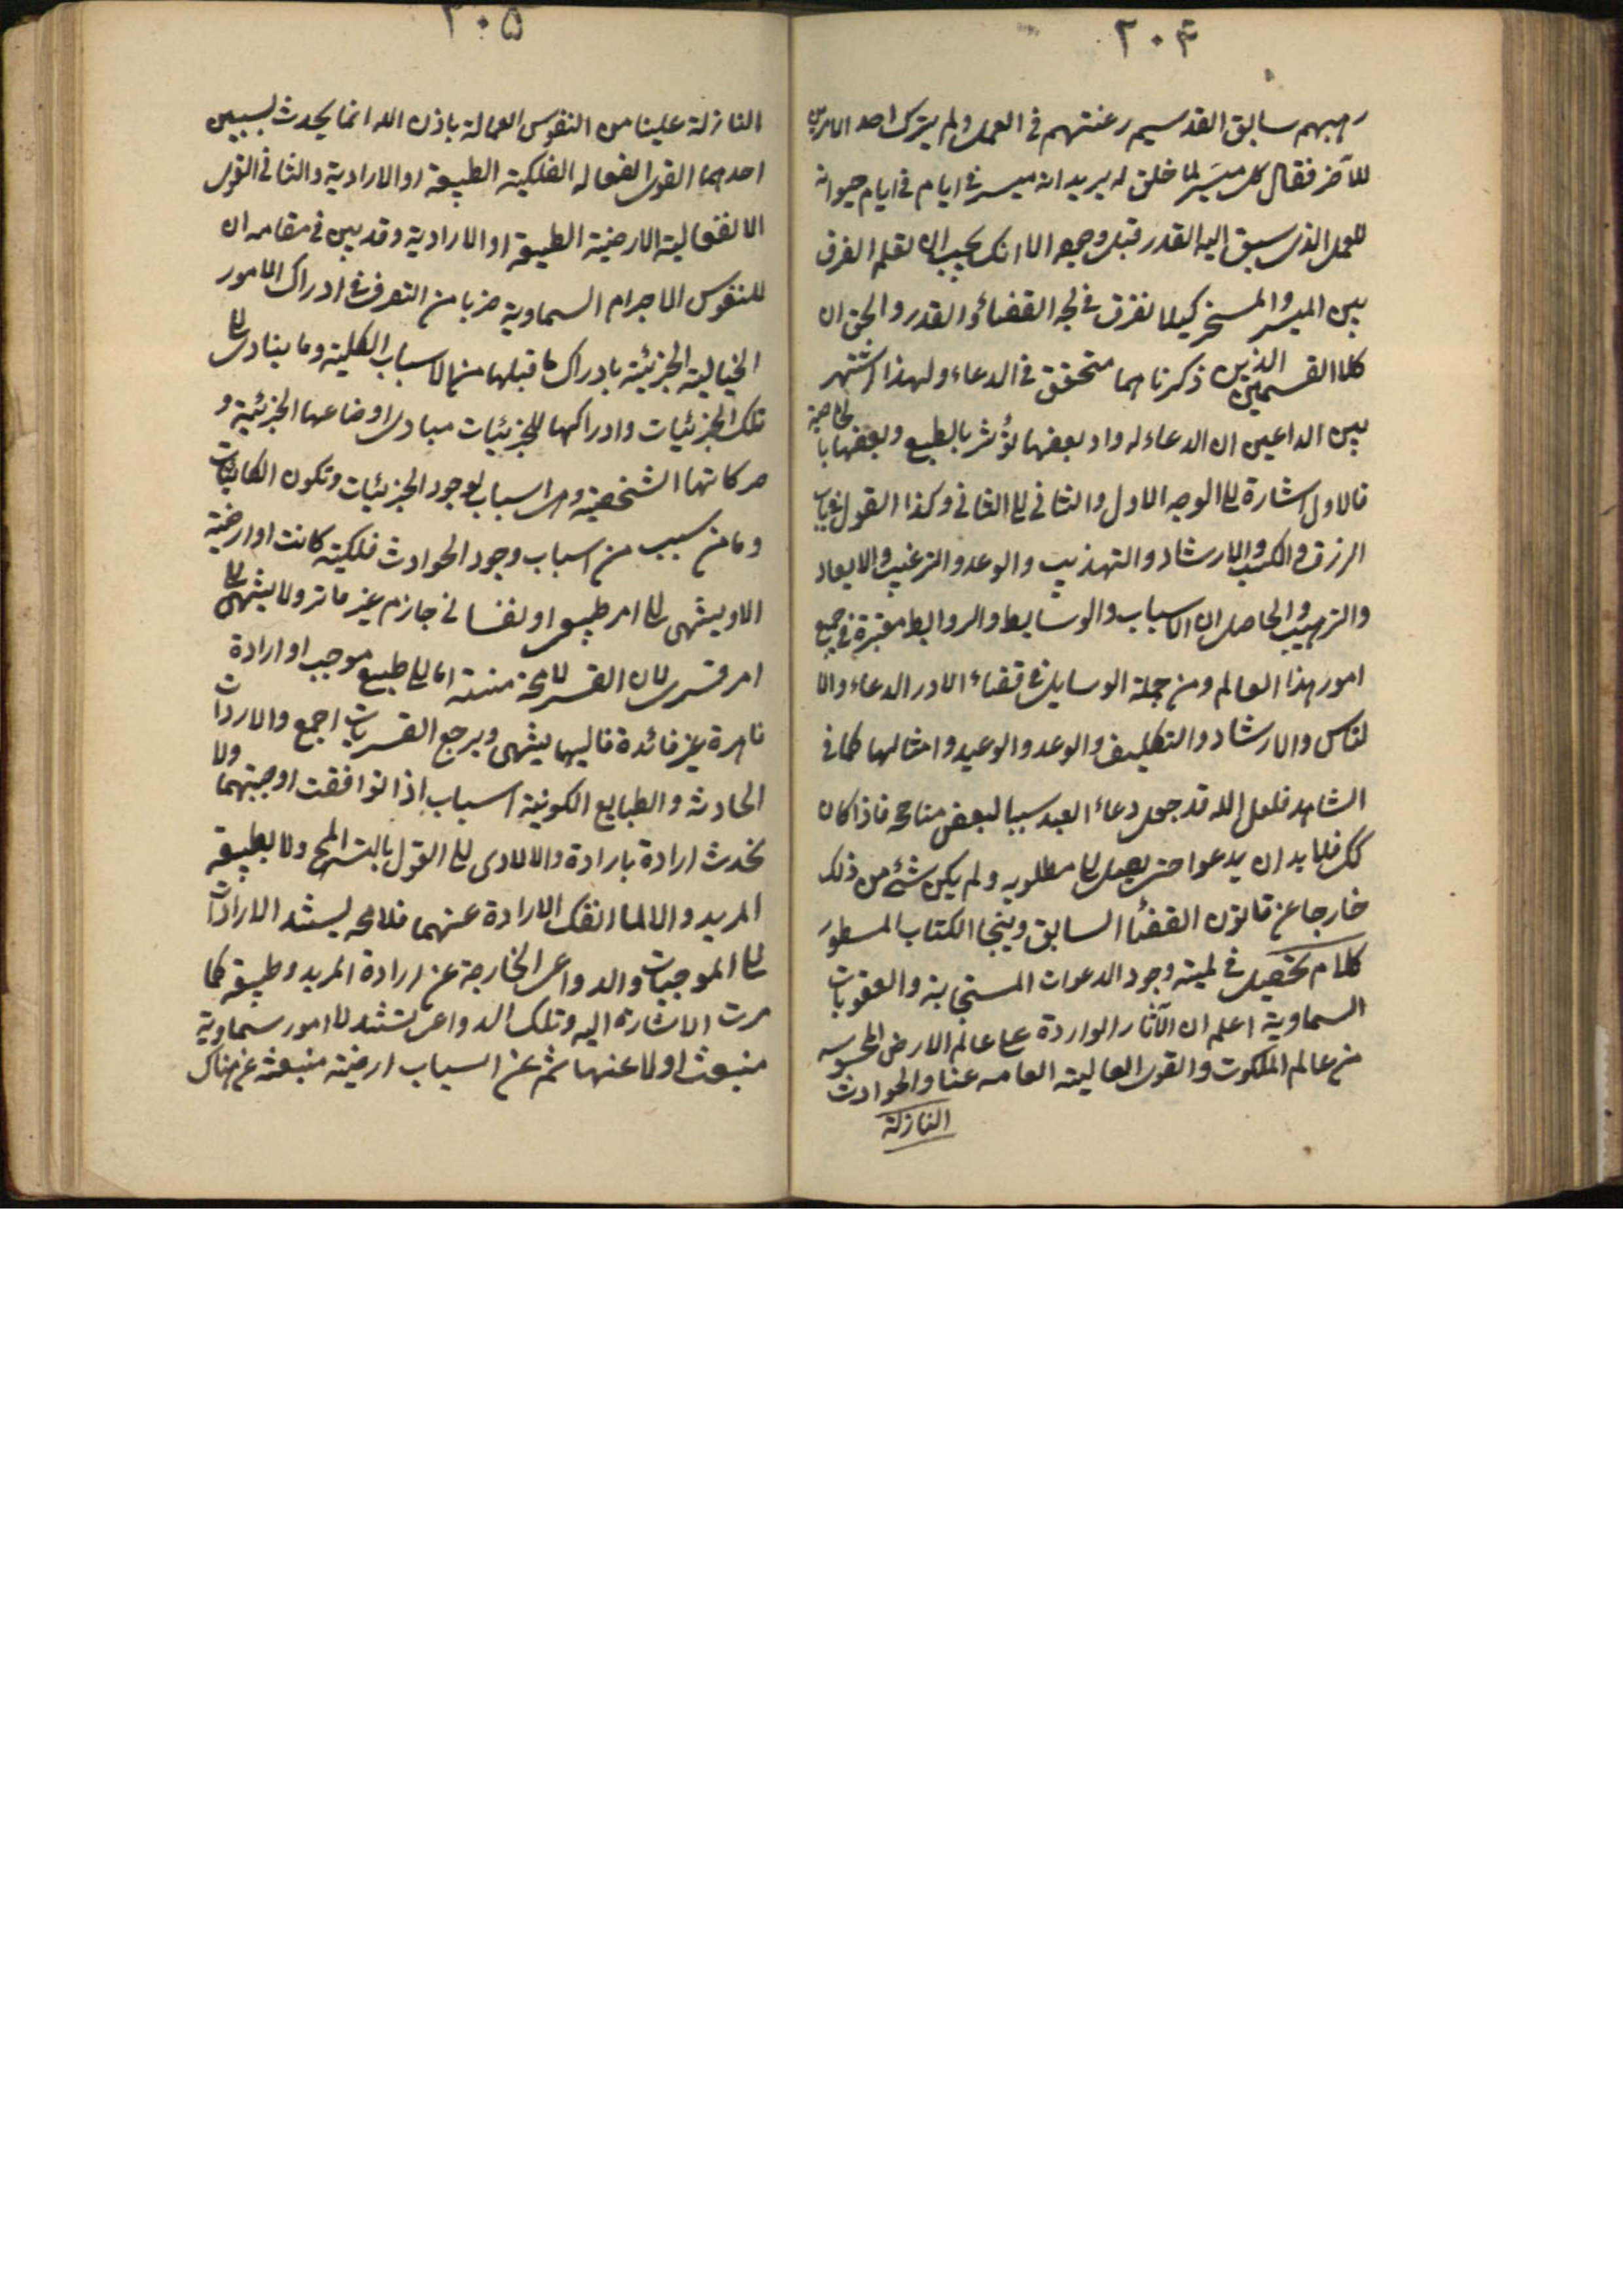 ۳۰۴
رهبهم سابق القدسيم رغنتهم فى العمل ولم يترك احد الامرين
للآخر فقال كل ميسر لما خلق له يريد انه ميسر فى ايام فى ايام حيوانه
للعمل الذى سبق اليه القدر قبل وجوده الا انك يجب ان تعلم الفرق
بين الميسر والمسخر كيلا تغرق فى لجه القضاء والقدر والحق ان
كلا القسمين الذين ذكرناهما متحقق فى الدعاء ولهذا اشتهر
بين الداعين ان الدعاء له واد بعضها يؤثر بالطبع وبعضها بالخاصية
فالاول اشارة الى الوجه الاول والثانى الى الثانى وكذا القول فى باب
الرزق والكسب والارشاد والتهذيب والوعد والترغيب والايعاد
والترهيب والحاصل ان الاسباب والوسايط والروابط معتبرة فى جميع
امور هذا العالم ومن جملة الوسايل فى قضاء الادر الدعاء والا
لتماس والارشاد والتكليف والوعد والوعيد وامثالها كما فى
الشاهد فلعل الله قد جعل دعاء العبد سببا لبعض مناجحه فاذا كان
كك فلابد ان يدعوا حتى يصل الى مطلوبه ولم يكن شئ من ذلك
خارجا عن قانون القضاء السابق وينجا الكتاب المسطور
كلام تحصيل فى لمية وجود الدعوات المستجابة والعقوبات
السماوية اعلم ان الآثار الواردة على عالم الارض المحسوسه
من عالم الملكوت والقوى العالية العامه عنا والحوادث
النازلة
۳۰۵
النازلة علينا من النفوس العمالة باذن الله انما يحدث لسببين
احدهما القوى الفعاله الفلكية الطبيعة او الارادية والثانى القوى
الانفعالية الارضية الطبيعة او الارادية وقد بين فى مقامه ان
للنفوس الاجرام السماوية ضربا من التصرف فى ادراك الامور
الخيالية الجزئية بادراك ما قبلها من الاسباب الكلية وما يتادى الى
تلك الجزئيات وادراكها للجزئيات مبادى اوضاعها الجزئية و
حركاتها الشخصية وهى اسباب لوجود الجزئيات وتكون الكائنات
وما من سبب من اسباب وجود الحوادث فلكية كانت او ارضية
الا وينتهى الى امر طبيعى او نفسانى جازم غير ماتر ولا ينتهى الى
امر قسرى لان القسر لامحة منته اما الى طبيع موجب او ارادة
ناهرة عن فائدة فاليهما ينتهى ويرجع القسريات اجمع والارادات
الحادثه والطبايع الكونية اسباب اذا توافقت اوجبتهما ولا
تحدث ارادة بارادة والا لادى الى القول بالتس المح ولا بطبيعة
المريد والا لما انفك الارادة عنهما فلامحه ليستند الارادات
الى الموجبات والدواعى الخارجة عن ارادة المريد وطبيعة كما
مرت الاشارة اليه وتلك الدواعى تستند الى امور سماوية
منبعث اولا عنها ثم عن اسباب ارضية منبعثه عن هناك